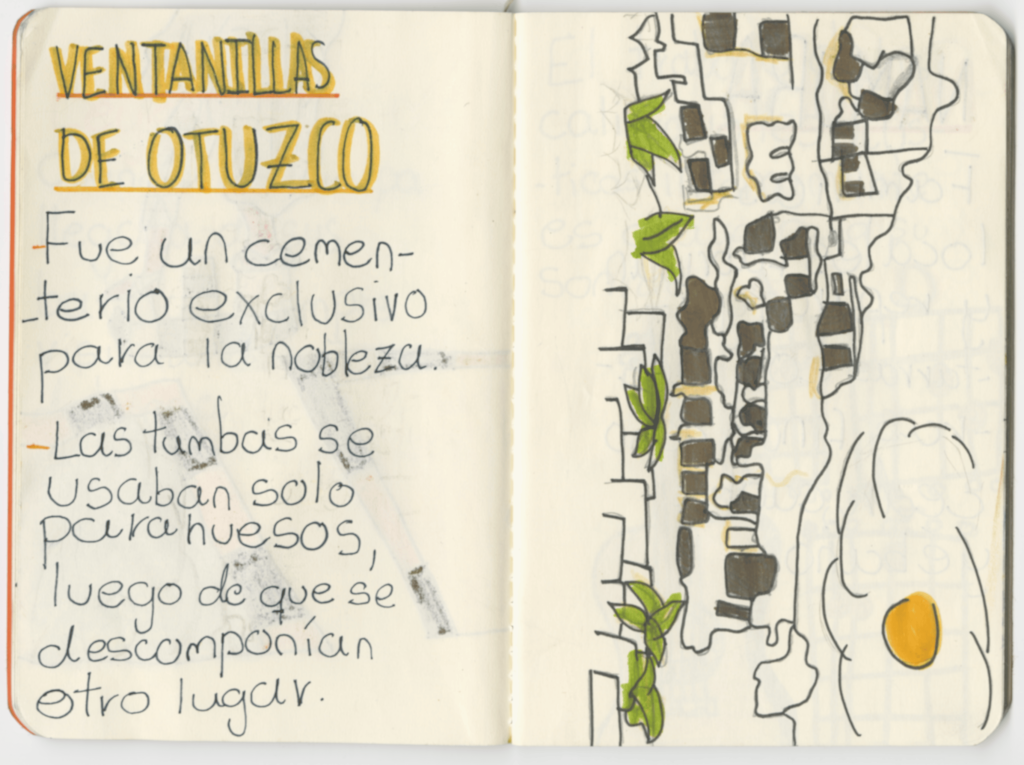 VENTANILLAS
DE OTUZCO
-Fue un cemen-
terio exclusivo
para la nobleza.
-Las tumbas se
usaban solo
para huesos,
luego de que se
descomponían
otro lugar.